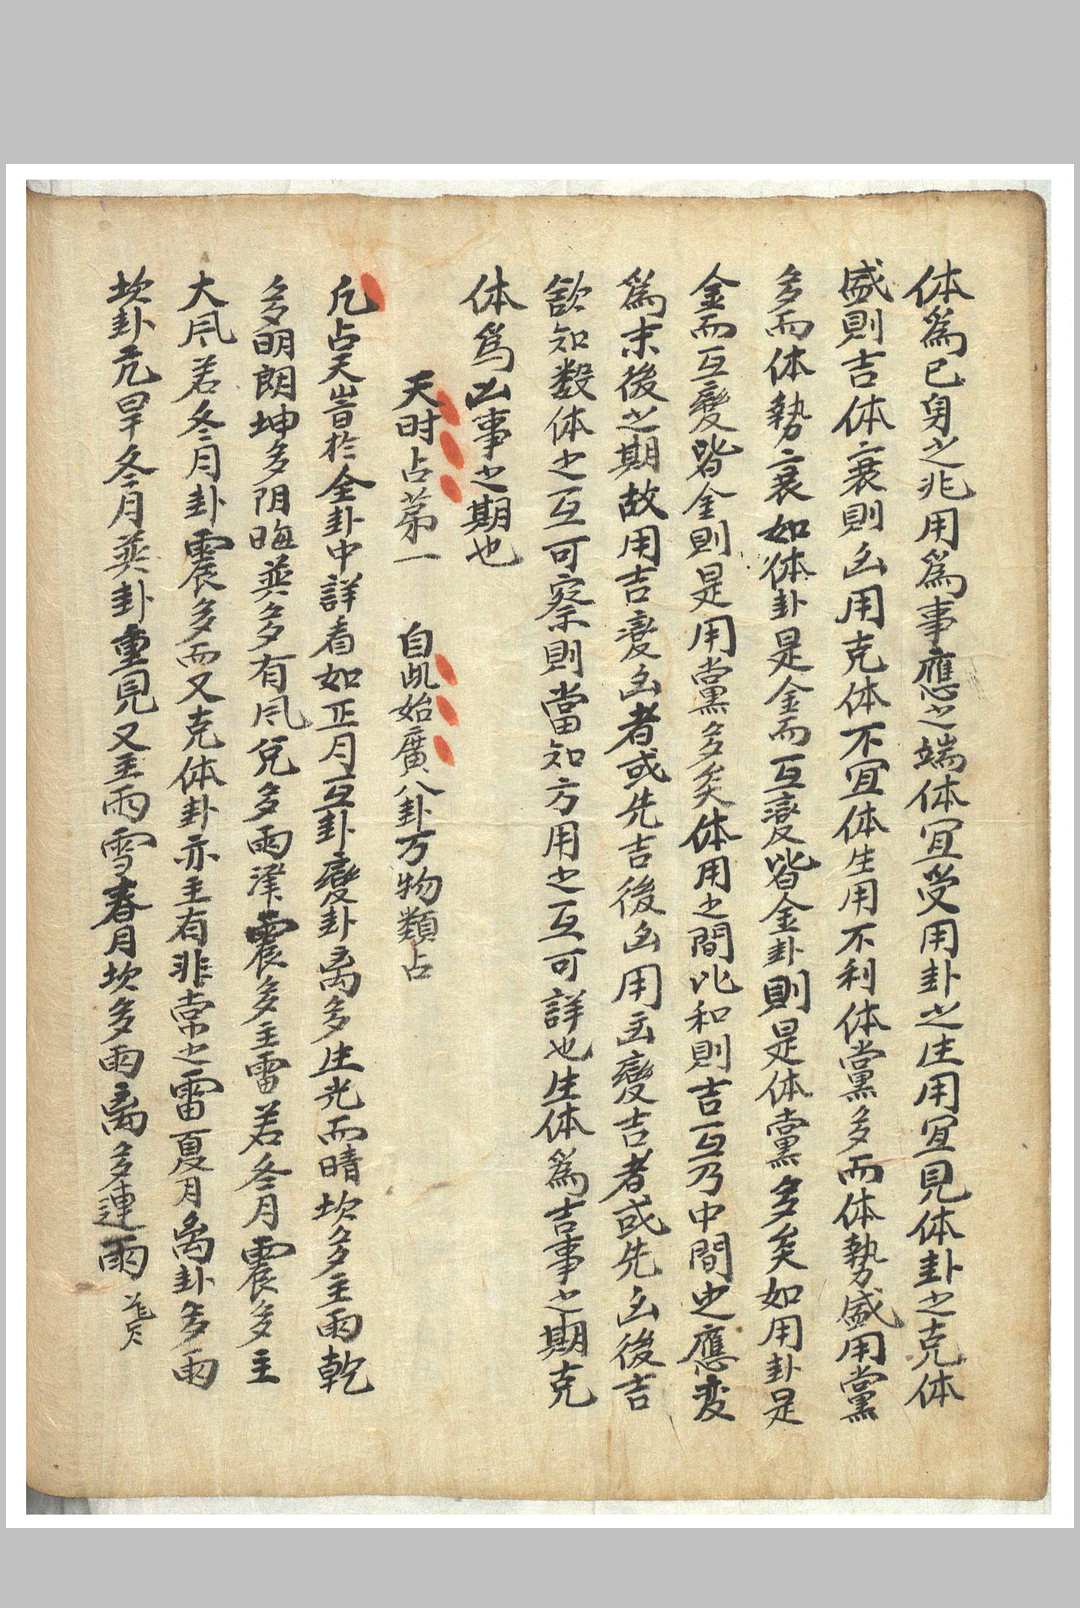 体為已身之兆用為事應之端体宜受用卦之生用宜見体卦之克体
盛則吉体衰則凶用克体不宜体生用不利体黨多而体勢盛用黨
多而体勢衰如体卦是金而互变皆金卦則是体黨多矣如用卦是
金而互變皆金則是用黨多矣体用之間比和則吉互乃中間之應变
為末後之期故用吉变凶者或先吉後凶用凶變吉者或先凶後吉
欲知数体之互可察則當知方用之互可詳也生体為吉事之期克
体為凶事之期也
天时占苐一　自此始廣八卦万物類占
凢占天旹於全卦中詳看如正月互卦變卦离多生光而晴坎多主雨乾
多明朗坤多阴晦巽多有风兑多雨澤震多主雷若冬月震多主
大风若冬月卦震多而又克体卦亦主有非常之雷夏月离卦多雨
坎卦亢旱冬月巽卦重見又主雨雪春月坎多雨离多連雨